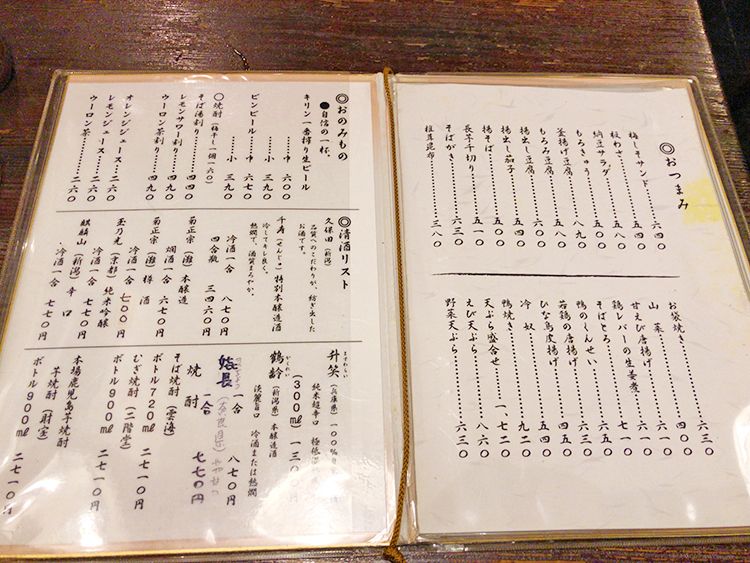 ◎おつまみ
梅しそサンド………六四〇
板わさ………五四〇
納豆サラダ………五八〇
もろきゅう………五五〇
釜揚げ豆腐………八九〇
もろみ豆腐………五〇〇
揚出し豆腐………六〇〇
揚出し茄子
揚そば………五〇〇
長芋千切り………五一〇
そばがき………六三〇
椎茸昆布………三八〇
お袋焼き………六三〇
山菜………四〇〇
甘えび唐揚げ………六三〇
鶏レバーの生姜煮………六三〇
そばとろ………七一〇
鴨のくんせい………六三〇
若鶏の唐揚げ………四五〇
ひな鳥皮揚げ………五四〇
冷奴………四五〇
鴨焼き………九二〇
天ぷら盛合せ………一、
えび天ぷら………八六〇
野菜天ぷら………六三〇
◎おのみもの
●自信の一杯。
キリン一番搾り生ビール
中 六〇〇
小 三九〇
ビンビール………中 六七〇
小 三九〇
◎焼酎(梅干し一個 六〇)
そば湯割り………四九〇
レモンサワー割り………四九〇
ウーロン茶割り………四九〇
オレンジジュース………二六〇
レモンジュース………二六〇
ウーロン茶………二六〇
◎清酒リスト
久保田(新潟)
品質へのこだわりが、紡ぎ出した
お酒です。
千寿(せんじゅ)特別本醸造酒
冷してキレ良く。
熱燗で、酒質まろやか。
冷酒一合 八七〇円
四合瓶 三四六〇円
菊正宗(灘)本醸造
燗酒一合 六七〇円
菊正宗(灘)樽酒
冷酒一合 七〇〇円
玉乃光(京都)純米吟醸
冷酒一合 七七〇円
麒麟山(新潟)辛口
冷酒一合 七七〇円
升笑(兵庫県)一〇〇%
純米超辛口
(300㎖) 一三〇〇円
鶴齢(新潟県)本醸造酒
淡麗旨口 冷酒または熱燗
一合 八七〇円
(奈良県)
一合 七七〇円
焼酎
そば焼酎(雲海)
ボトル720㎖ 二七一〇円
むぎ焼酎(二階堂)
ボトル900㎖ 二七一〇円
本場鹿児島芋焼酎
芋焼酎(財宝)
ボトル900㎖ 二七一〇円